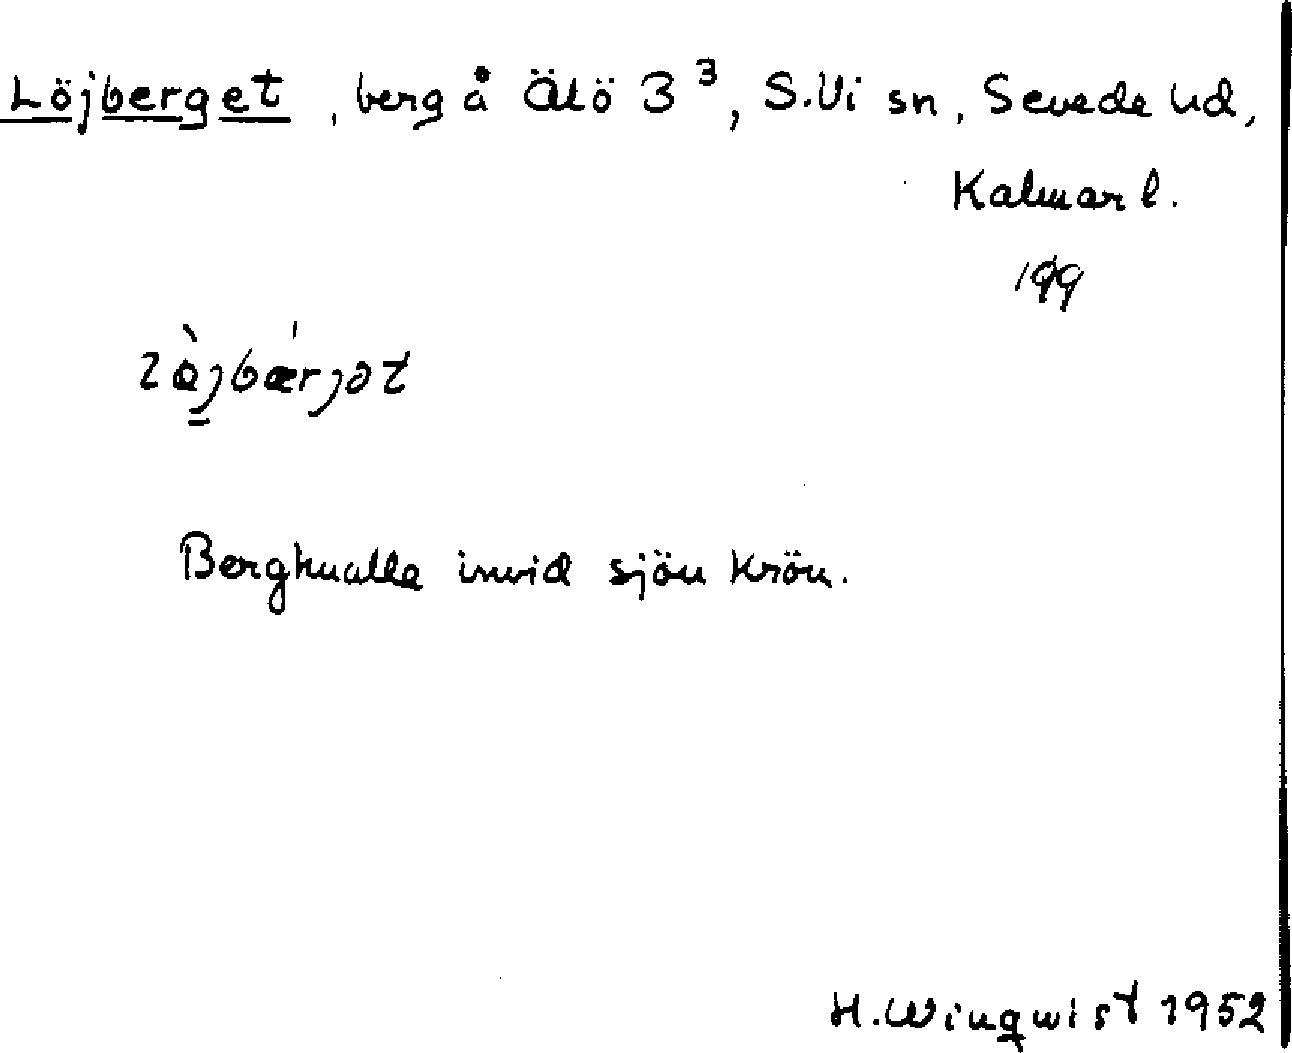 Löjberget, berg å Älö 3³, S.Vi sn, Sevede hd,
Kalmar l.
199
Berghalla invid sjön Krön.
H. Winqwist 1952